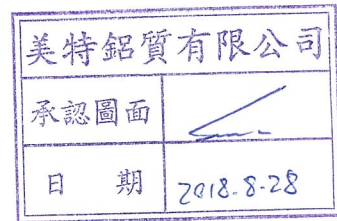 美特鋁質有限公司
承認圖面
日期 2018-8-28